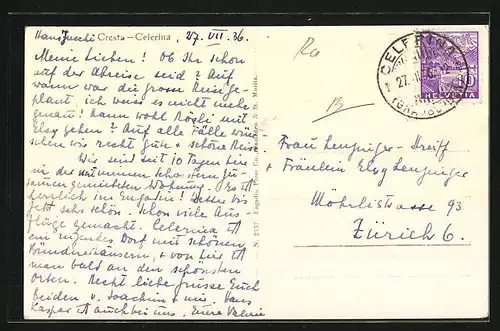 Cresta—Celerina, 27. VII. 36.
Meine Lieben! Ob Ihr schon
auf der Abreise seid? Auf
wann war die grosse Reise ge-
plant ich weiss es nicht mehr
genau! Kann wohl Rösli mit
Elsy gehen? Auf alle Fälle wün-
schen wir recht gute & schöne Reise
Wir sind seit 10 Tagen hier
in der
Wohnung. Es ist
herrlich im Engadin! Wetter bis
jetzt sehr schön. Schon viele Aus-
flüge gemacht. Celerina ist
ein reizendes Dorf mit schönen
Bündnerhäusern, & von hier ist
man bald an den schönsten
Orten. Recht liebe Grüsse Euch
beiden v. Joachim & mir. Hans
Kaspar ist auch bei uns. Eure Valerie
CELERINA
27.
HELVETIA
10
Frau
Fräulein Elsy
Möhrlistrasse 93
Zürich 6.